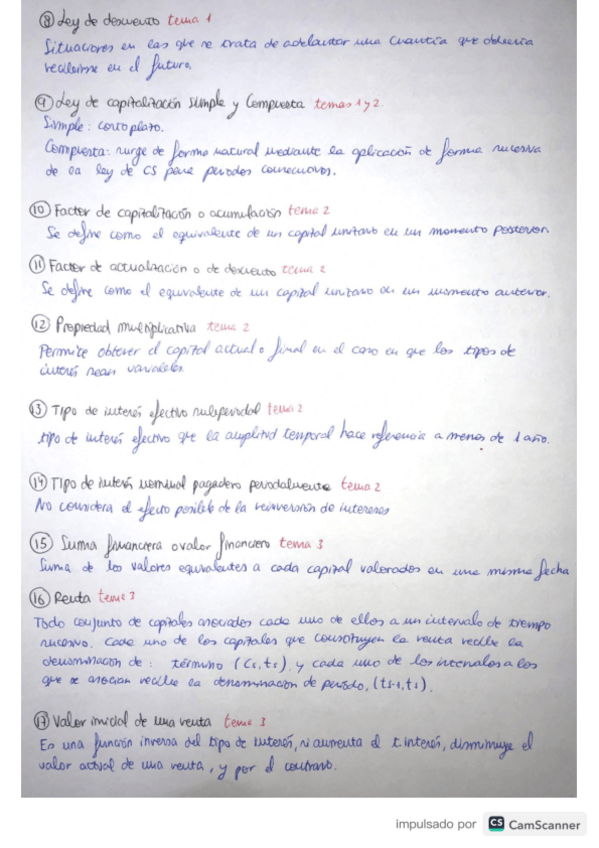 ⑧ Ley de descuento tema 1
Situaciones en las que se trata de adelantar una cuantía que debería
recibirse en el futuro.
⑨ Ley de capitalización simple y compuesta temas 1 y 2.
Simple: corto plazo.
Compuesta: surge de forma natural mediante la aplicación de forma sucesiva
de la ley de CS para periodos consecutivos.
⑩ Factor de capitalización o acumulación tema 2
Se define como el equivalente de un capital unitario en un momento posterior
⑪ Factor de actualización o de descuento tema 2
Se define como el equivalente de un capital unitario en un momento anterior.
⑫ Propiedad multiplicativa tema 2
Permite obtener el capital actual o final en el caso en que los tipos de
interés sean variables.
⑬ Tipo de interés efectivo subperiodal tema 2
tipo de interés efectivo que la amplitud temporal hace referencia a menos de 1 año.
⑭ Tipo de interés nominal pagadero periodalmente tema 2
No considera el efecto posible de la reinversión de intereses
⑮ Suma financiera o valor financiero tema 3
Suma de los valores equivalentes a cada capital valorados en una misma fecha
⑯ Renta tema 3
Todo conjunto de capitales asociados cada uno de ellos a un intervalo de tiempo
sucesivo. Cada uno de los capitales que constituyen la renta recibe la
denominación de: término (Cs,ts), y cada uno de los intervalos a los
que se asocian recibe la denominación de periodo, (ts-1,ts).
⑰ Valor inicial de una renta tema 3
Es una función inversa del tipo de interés, si aumenta el t. interés, disminuye el
valor actual de una renta, y por el contrario.
impulsado por CS CamScanner